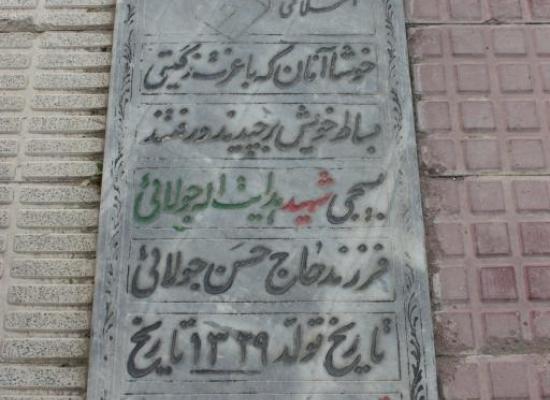 اسلامی
خوشا آنان که با عزت ز گیتی
بساط خویش برچیدند و رفتند
بسیجی شهید هدایت اله جولائی
فرزند حاج حسن جولائی
تاریخ تولد ۱۳۳۹ تاریخ